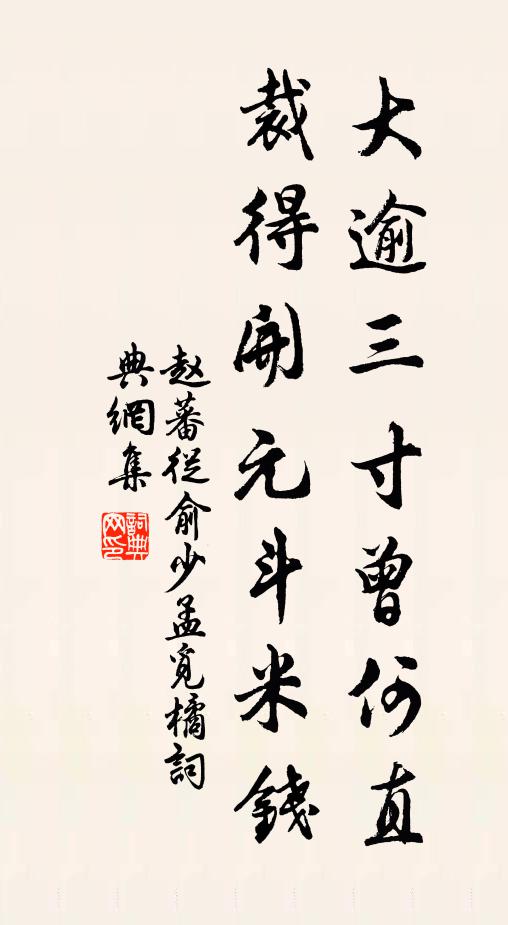 大逾三寸曾何直
裁得開元斗米錢
赵蕃從俞少孟覓橘詞
典網集
詞典網印